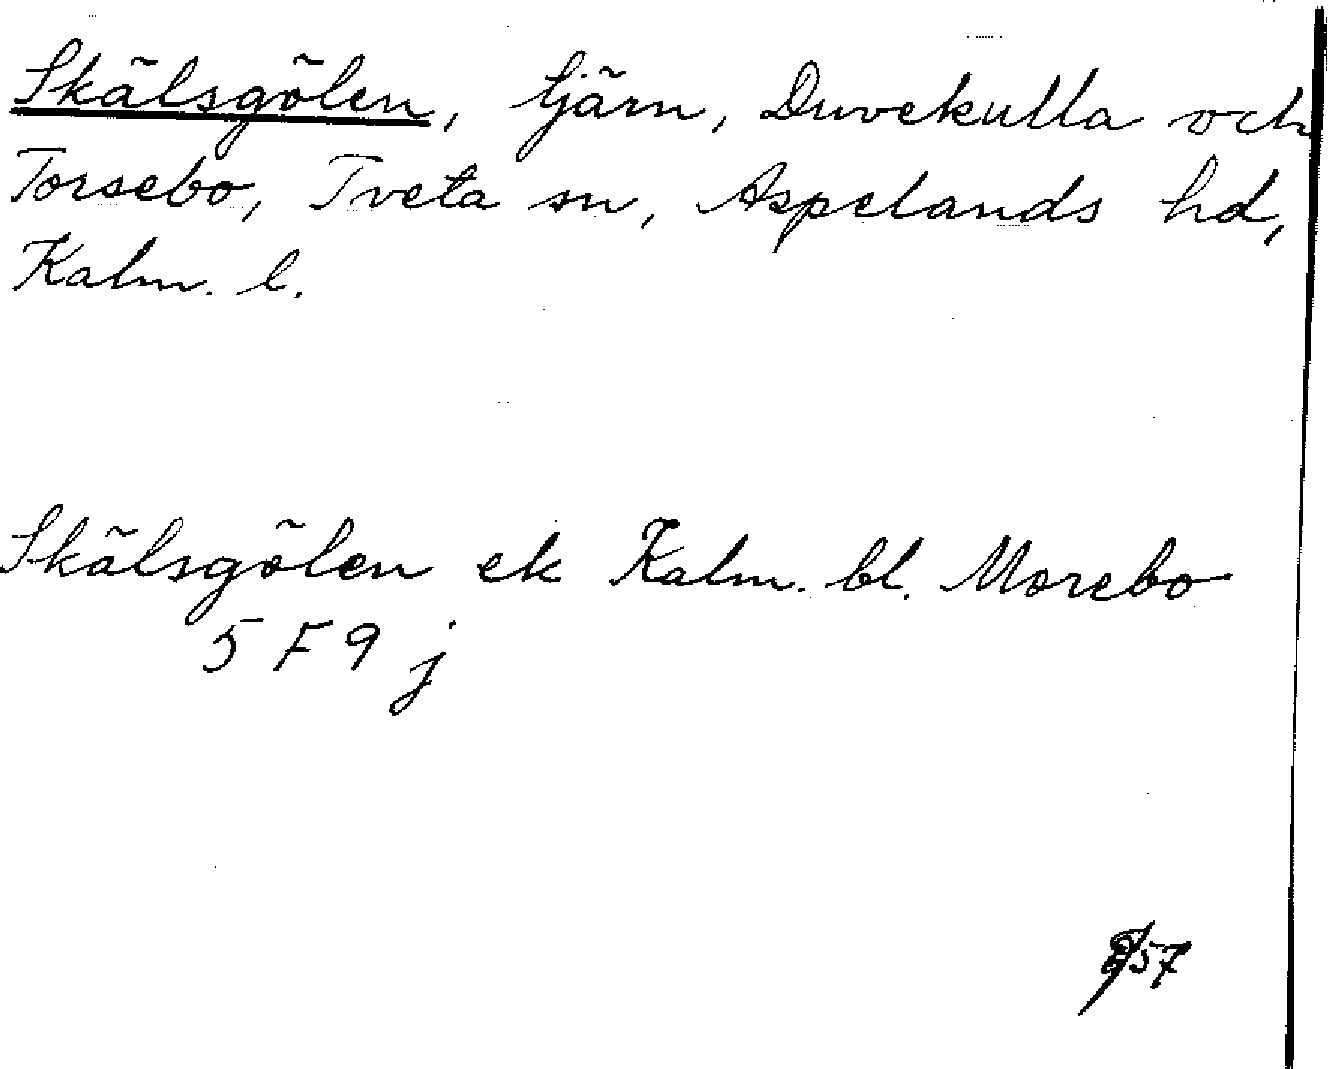 Skälsgölen, tjärn, Duvekulla och
Torsebo, Tveta sn, Aspelands hd,
Kalm. l.
Skälsgölen ek Kalm. bl. Morebo
5 F 9 j